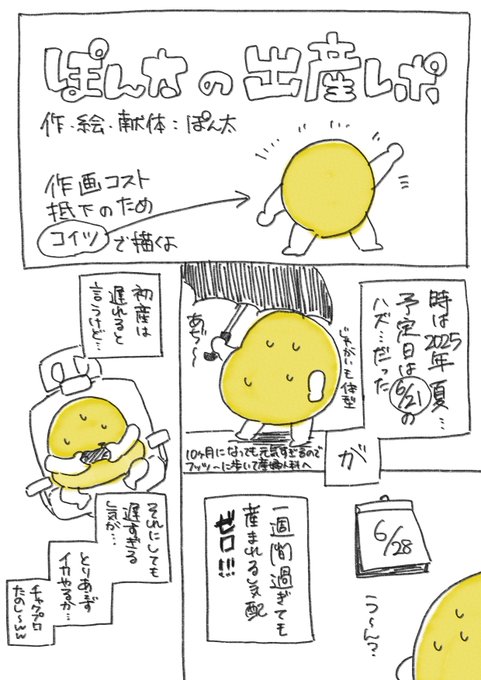 ぽんたの出産レポ
作・絵・献体：ぽん太
作画コスト
抵下のため
コイツで描くよ
時は2025年 夏…
予定日は6/21の
ハズ…だった
が
じゃがいも体型
あぢ〜
10ヶ月になっても元気すぎるので
フツーに歩いて産婦人科へ
初産は
遅れると
言うけど…
6/28
う〜ん？
一週間過ぎても
産まれる気配
ゼロ!!!
それにしても
遅すぎる
気が…
とりあえず
イカやるか…
チャクプロ
たのし〜ww